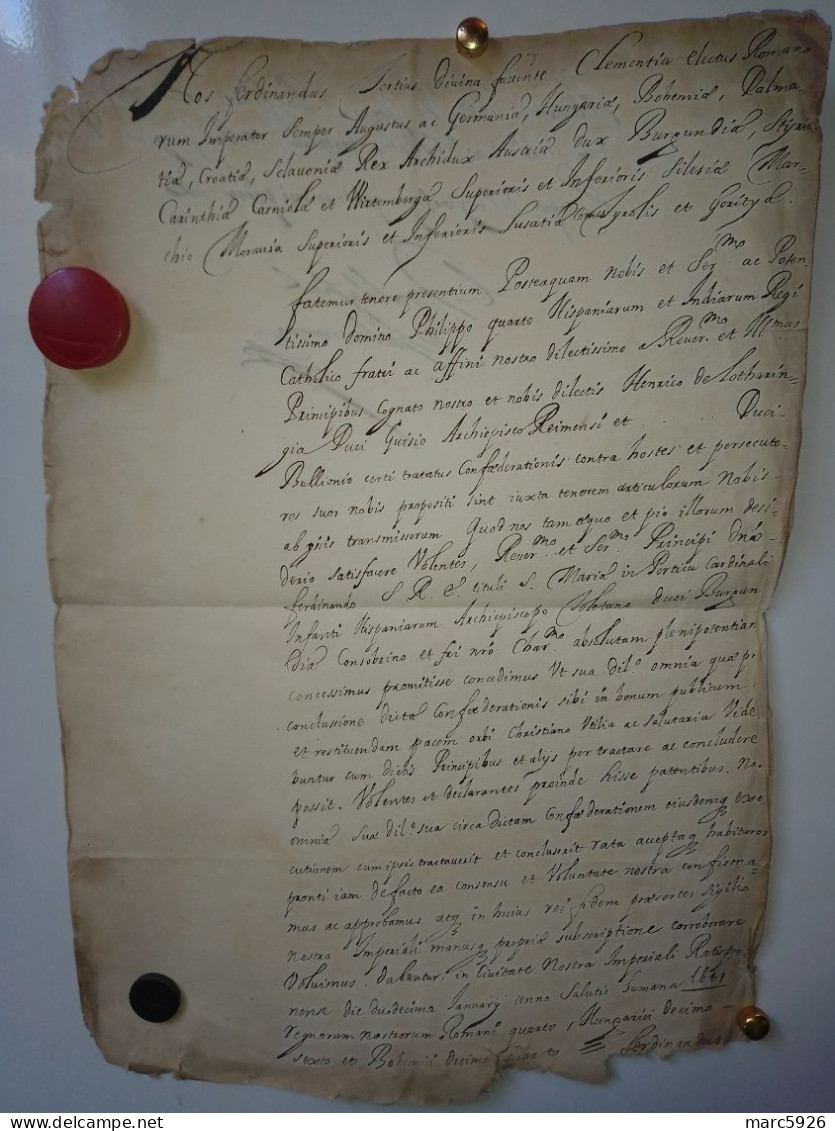 Nos Ferdinandus Tertius Divina favente Clementia Electus Romano
rum Imperator Semper Augustus ac Germaniæ, Hungariæ, Bohemiæ, Dalma-
tiæ, Croatiæ, Sclavoniæ Rex Archidux Austriæ dux Burgundiæ, Styriæ
Carinthiæ Carniolæ et Wirtembergæ Superioris et Inferioris Silesiæ Mar-
chio Moraviæ Superioris et Inferioris Lusatiæ Comes Tyrolis et Goritiæ.
fatemur tenore presentium Posteaquam Nobis et Ser.mo ac Poten-
tissimo domino Philippo quarto Hispaniarum et Indiarum Regi
Catholico fratri ac affini nostro dilectissimo a Rever.mo et Ill.mus
Principibus Cognato nostro et nobis dilectis Henrico de Lotharin-
gia Duci Guisio Archiepisco Reimensi et . . . . . Duci-
Bullionio certi tratatus Confœderationis contra hostes et persecuto-
res suor nobis propositi sint iuxta tenorem articulorum Nobis-
ab ipsis transmissorum Quod nos tam æquo et pio illorum desi-
derio satisfacere Volentes, Rever.mo et Ser.mo Principi Dno
Ferdinando S. R. E. tituli S. Mariæ in Porticu Cardinali
Infanti Hispaniarum Archiepiscopo Toletano duci Burgun
diæ Consobrino et fri nro Char.mo absolutam plenipotentian
concessimus promitisse concedimus Ut sua dil.o omnia quæ pr
conclussione dictæ Confœderationis sibi in bonum publicum
et restituendam pacem orbi Christiano Utilia ac salutaria Vide
buntur cum dictis Principibus et alijs per tractare ac concludere
possit. Volentes et declarantes proinde hisse patentibus. Nos
omnia sua dil.o sua circa dictam Confœderationem eiusdemq exe
cutionem cum ipsis tractaverit et concluserit rata aceptaq habituros
pront iam defacto ea consensu et Voluntate nostra confirma-
mus ac approbamus atq in huius rei fidem præsertes sigilio
nostro Imperiali manusq propriæ subscriptione corroborare
Voluimus. dabantur. in Civitate Nostra Imperiali Ratispo-
nense die duodecima January anno Salutis humanæ 1641
regnorum nostrorum Romani quarto, Hungarici decimo-
sexto et Bohemici decimo quarto Ferdinandus
marc5926